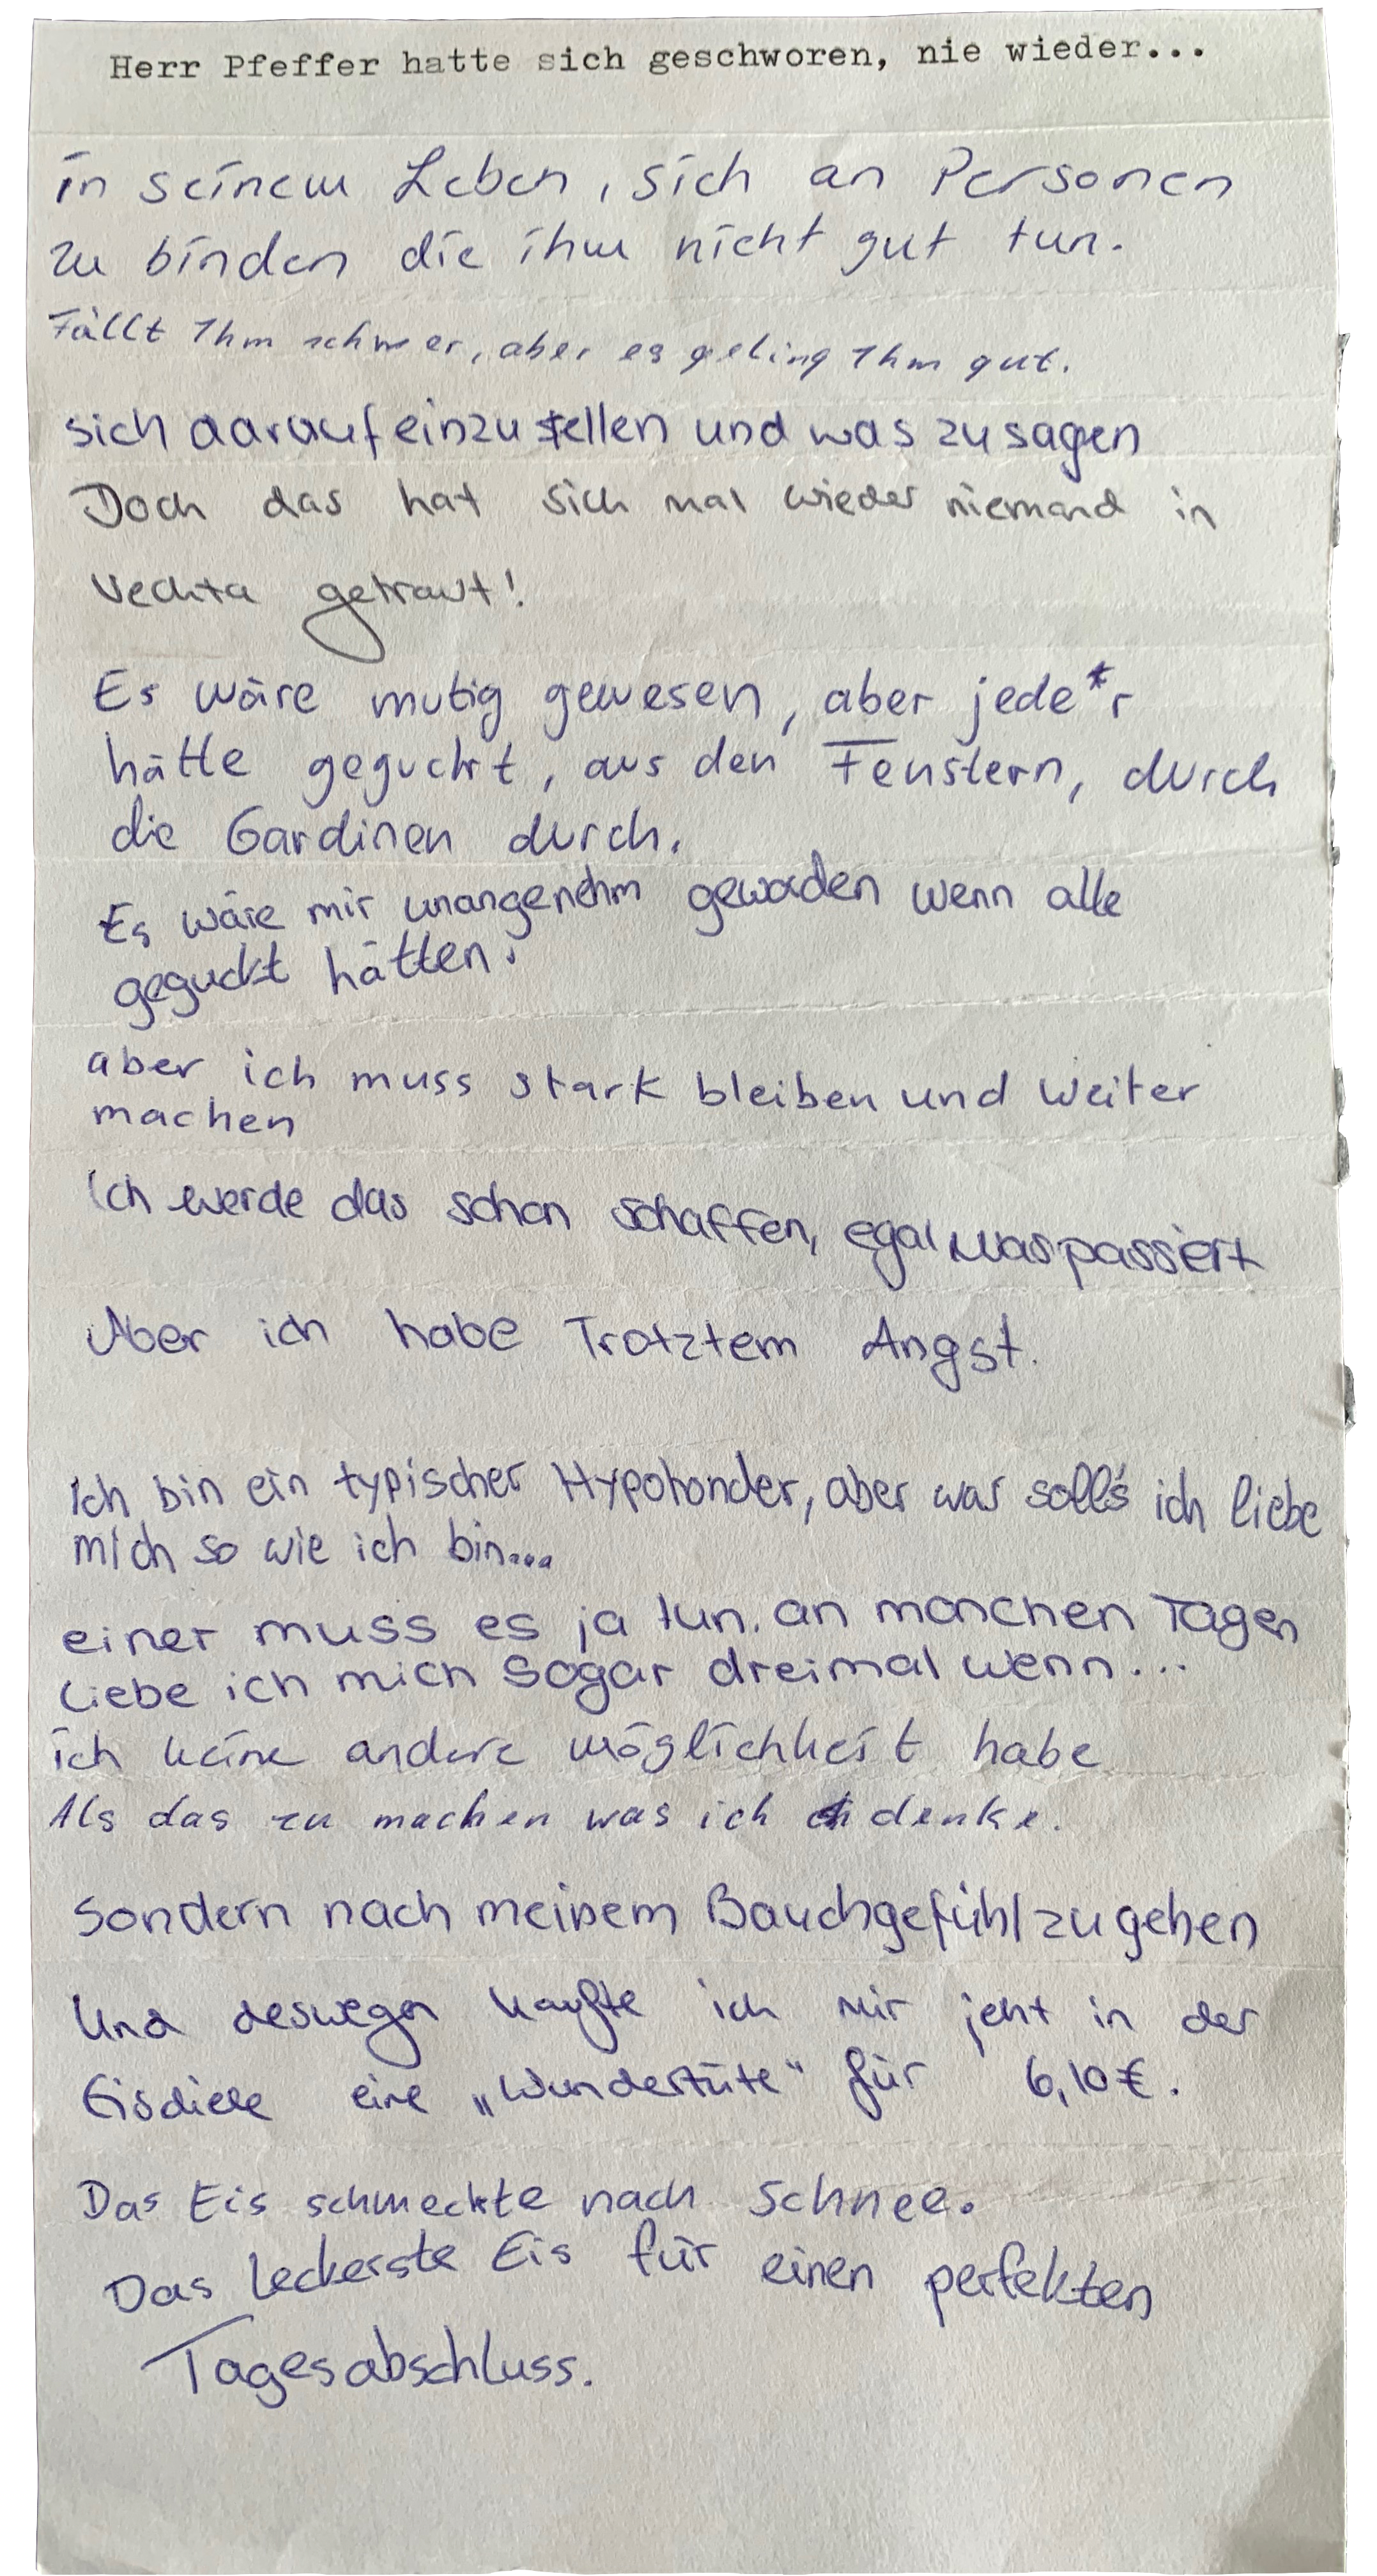 Herr Pfeffer hatte sich geschworen, nie wieder...
in seinem Leben, sich an Personen
zu binden die ihm nicht gut tun.
Fällt Ihm schwer, aber es geling Ihm gut.
sich darauf einzustellen und was zu sagen
Doch das hat sich mal wieder niemand in
Vechta getraut!
Es wäre mutig gewesen, aber jede*r
hätte geguckt, aus den Fenstern, durch
die Gardinen durch.
Es wäre mir unangenehm geworden wenn alle
geguckt hätten.
aber ich muss stark bleiben und weiter
machen
Ich werde das schon schaffen, egal was passiert
Aber ich habe Trotztem Angst.
Ich bin ein typischer Hypohonder, aber was soll's ich liebe
mich so wie ich bin...
einer muss es ja tun. an manchen Tagen
Liebe ich mich sogar dreimal wenn...
ich keine andere möglichkeit habe
Als das zu machen was ich denke.
Sondern nach meinem Bauchgefühl zu gehen
Und deswegen kaufte ich mir jetzt in der
Eisdiele eine „Wundertüte" für 6,10€.
Das Eis schmeckte nach Schnee.
Das leckerste Eis für einen perfekten
Tagesabschluss.